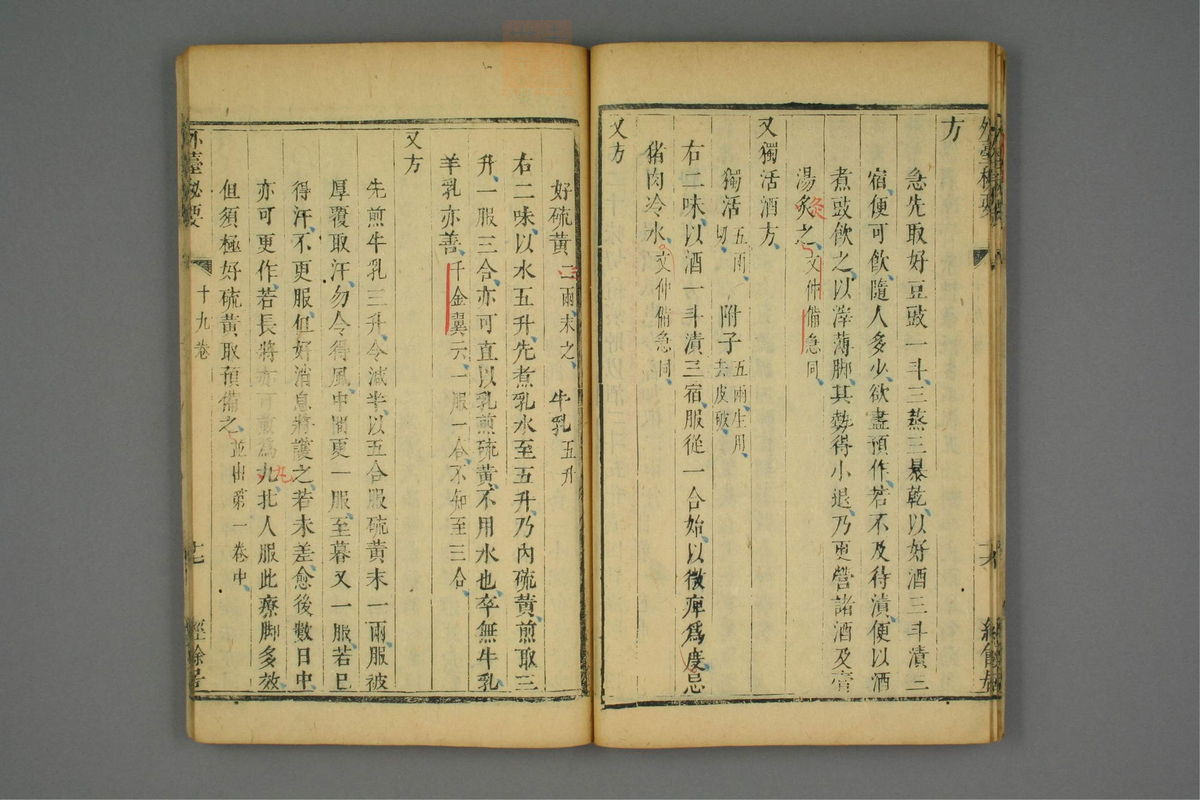 方
急先取好豆豉一斗三蒸三暴乾以好酒三斗漬三
宿便可飲隨人多少欲盡預作若不及待漬便以酒
煮豉飲之以滓薄脚其勢得小退乃更營諸酒及膏
湯炙之文仲備急同
灸
又獨活酒方
獨活五兩切 附子五兩生用去皮破
右二味以酒一斗漬三宿服從一合始以微痺為度忌
猪肉冷水文仲備急同
又方
好硫黃二兩末之 牛乳五升
右二味以水五升先煮乳水至五升乃內硫黃煎取三
升一服三合亦可直以乳煎硫黃不用水也卒無牛乳
羊乳亦善千金翼云一服一合不知至三合
又方
先煎牛乳三升令減半以五合服硫黃末一兩服被
厚覆取汗勿令得風中間更一服至暮又一服若已
得汗不更服但好消息將護之若未差愈後數日中
亦可更作若長將亦可煎為九北人服此療脚多效
丸
但須極好硫黃取預備之並出第一卷中
外臺秘要
十九卷
十七
經餘居